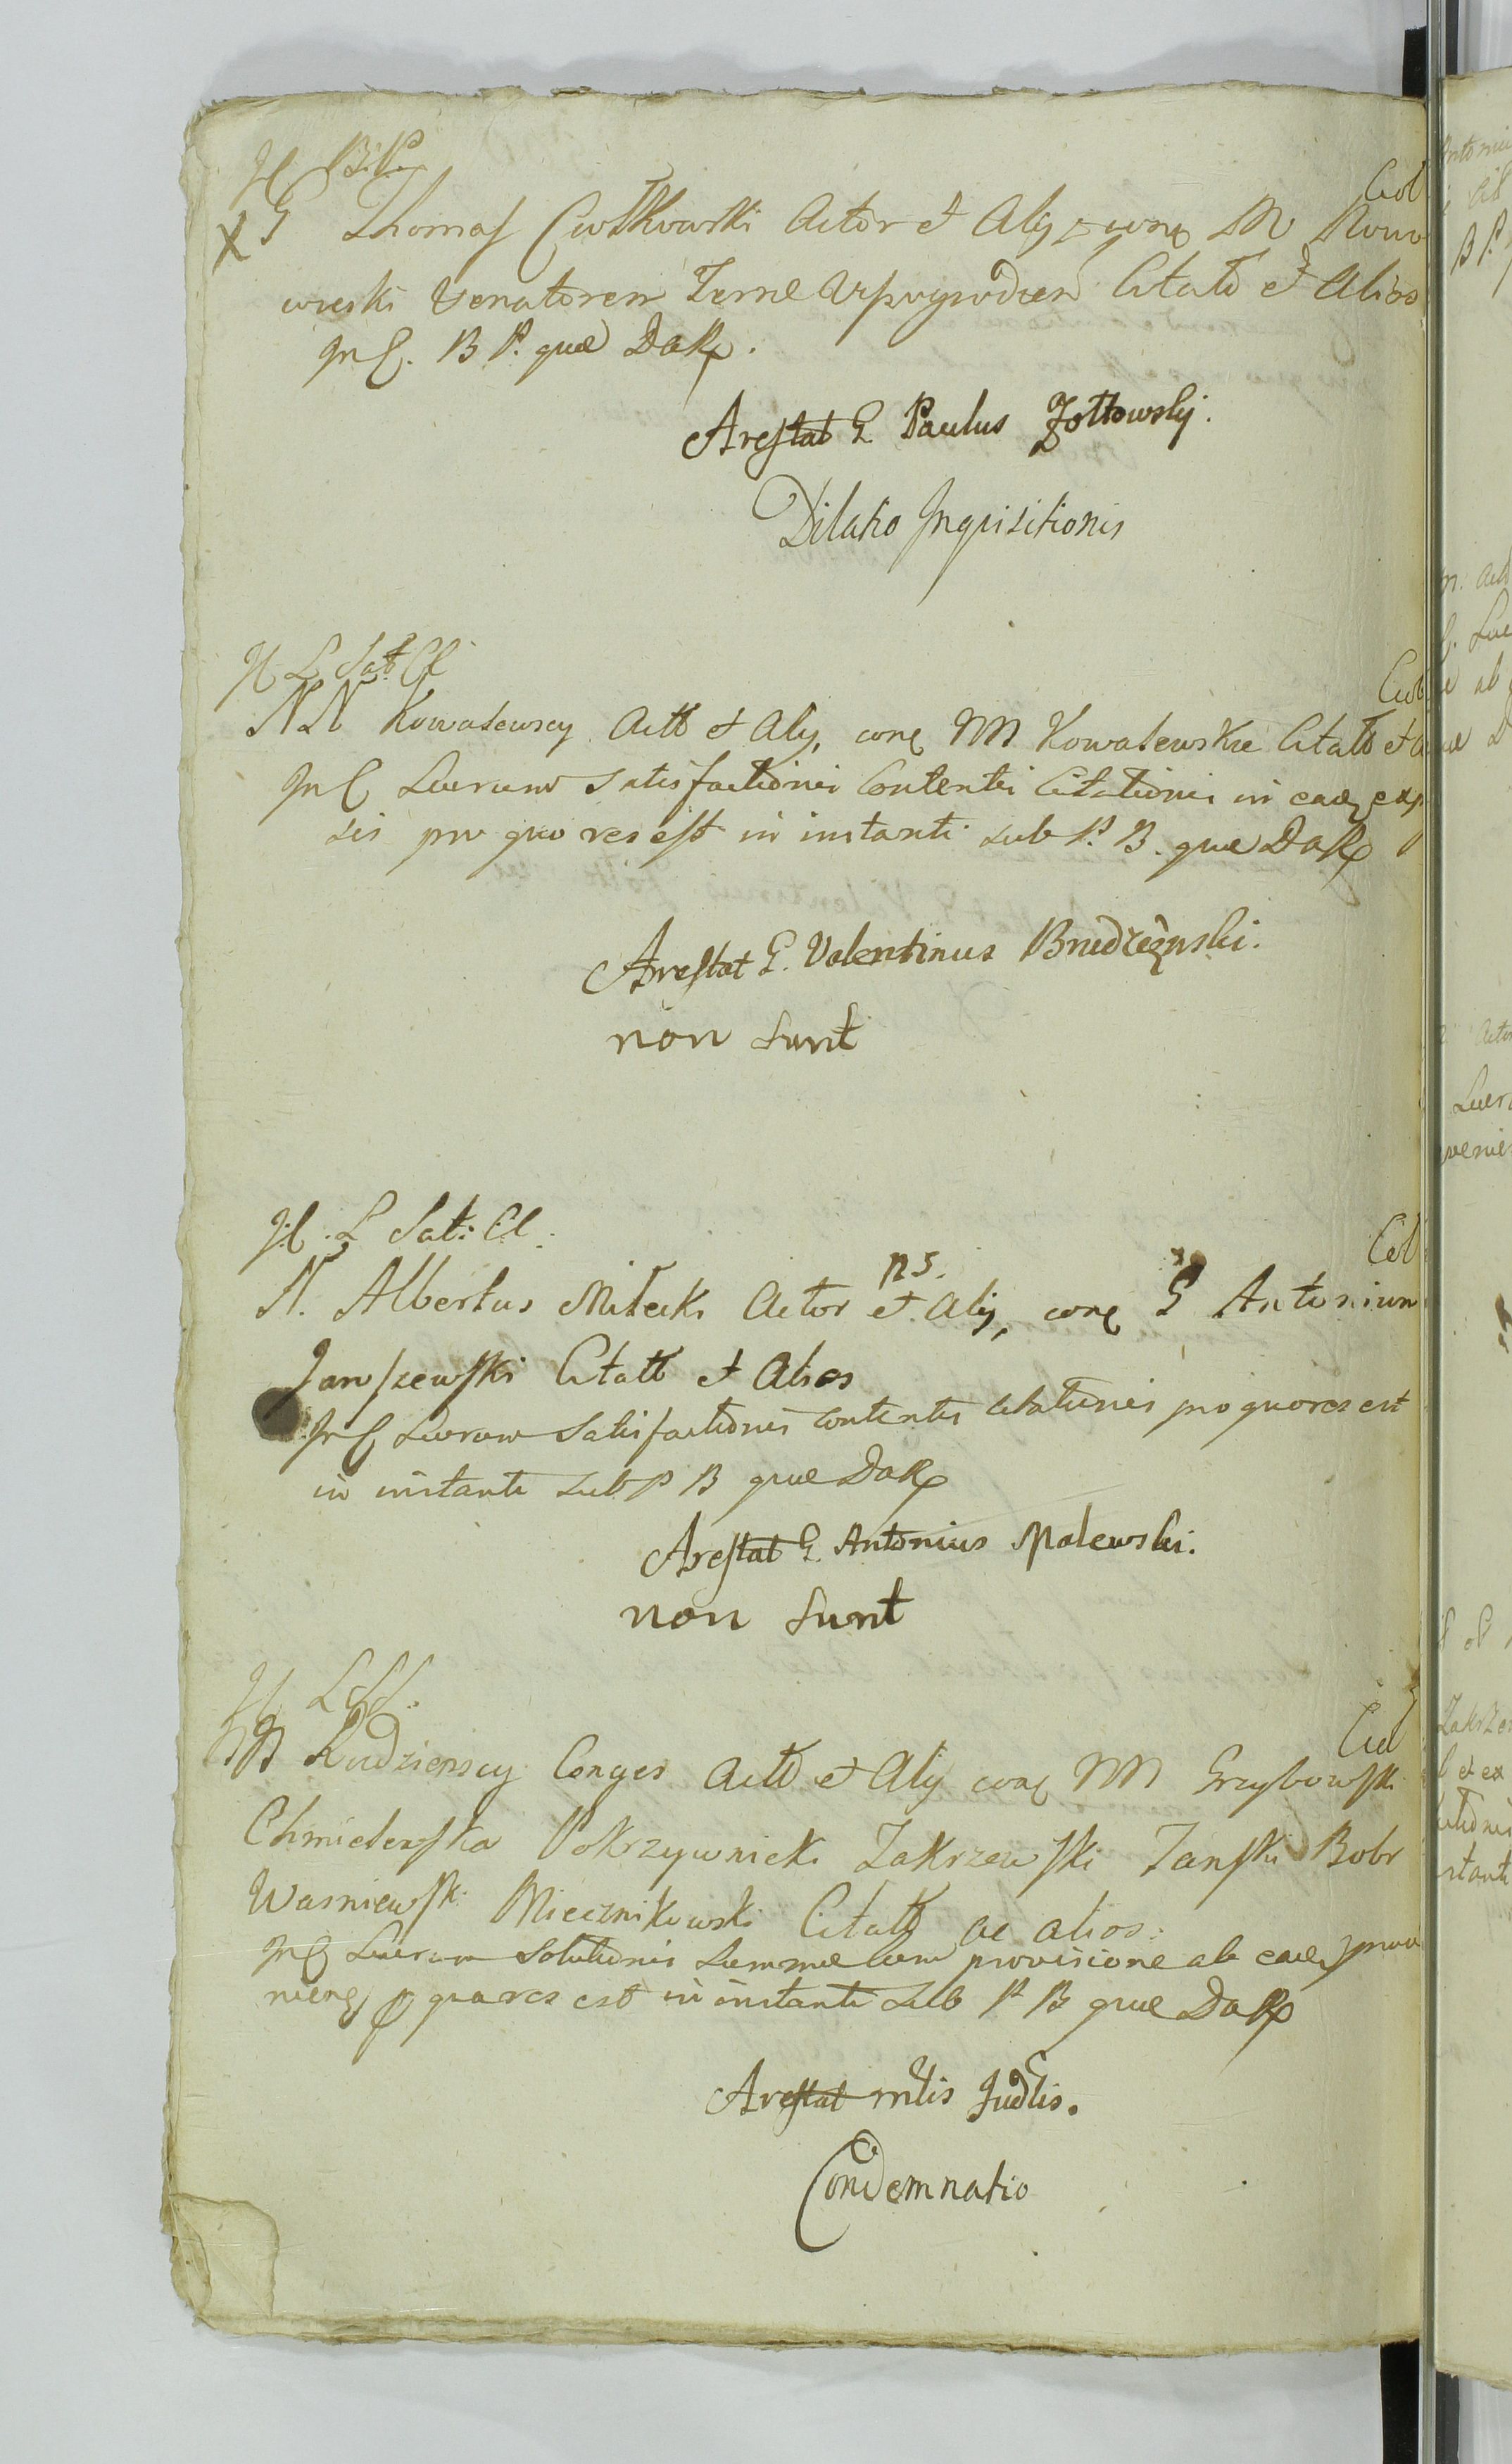 Jl B. P.
Col
X G Thomas Cwlkowski Actor et Alij conq M Nowo
wieski Venatorem Terrae Wyszogrodien Citatt et Alios
In C. B P. quae DaRp.
Arestat G. Paulus Zołtowskj.
Dilatio Inquisitionis
Jl L Sat Cl
Col
NN Kowalewscy Actt et Alij, conq MM Kowalewskie Citatt et
In C Lucrum Satisfactionis Contentis Citationis in eadq exp
sis pro quo res est in instanti sub P. B. quae DaRp
Arestat G. Valentinus Brudzęnski.
non sunt
Jl. L Sat: Cl.
Col
ns.
N. Albertus Miłecki Actor et Alij, conq G Antonium
Janszewski Citatt et Alios
In C Lucrum Satisfactionis Contentis Citationis pro quo res est
in instanti sub P B quae DaRp
Arestat G. Antonius Malewski.
non sunt
Jl
Col
NN Rudzienscy Conges Actt et Alij conq MM Grzybowski
Chmielewska Pokrzywnicki Zakrzewski Janski Bobr
Wasniewski Miecznikowski Citatt ac alios.
In C Lucrum Solutionis Summae cum provisione ab eadq prove
nienq p qua res est in instanti sub P B quae DaRp
Arestat mtis Judlis.
Condemnatio